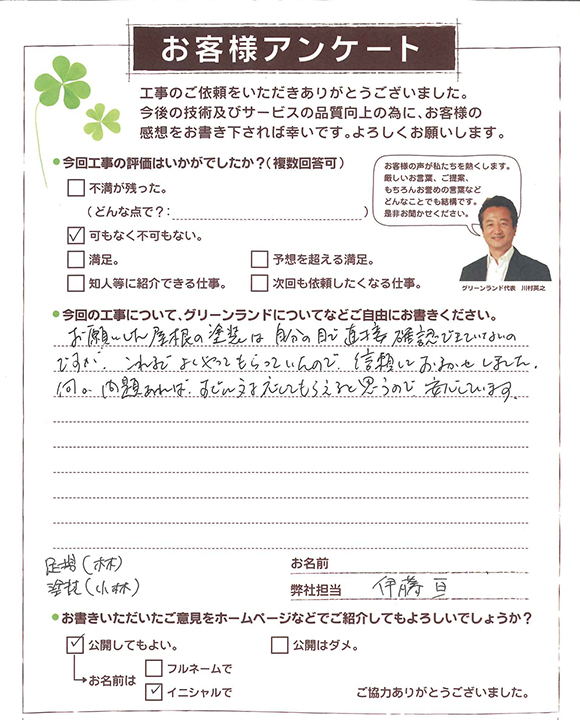 お客様アンケート
工事のご依頼をいただきありがとうございました。
今後の技術及びサービスの品質向上の為に、お客様の
感想をお書き下されば幸いです。よろしくお願いします。
●今回工事の評価はいかがでしたか?(複数回答可)
不満が残った。
(どんな点で?: )
可もなく不可もない。
満足。 予想を超える満足。
知人等に紹介できる仕事。 次回も依頼したくなる仕事。
お客様の声が私たちを熱くします。
厳しいお言葉、ご提案、
もちろんお誉めの言葉など
どんなことでも結構です。
是非お聞かせください。
グリーンランド代表 川村英之
●今回の工事について、グリーンランドについてなどご自由にお書きください。
お願いした屋根の塗装は自分の目で直接確認できていないの
ですが、これまでよくやってもらっていたので、信頼しておまかせしました。
何か問題あれば、すぐに対応してもらえると思うので安心しています。
足場(林)
塗装(小林)
お名前
弊社担当 伊藤 亘
●お書きいただいたご意見をホームページなどでご紹介してもよろしいでしょうか?
公開してもよい。 公開はダメ。
お名前は フルネームで
イニシャルで
ご協力ありがとうございました。